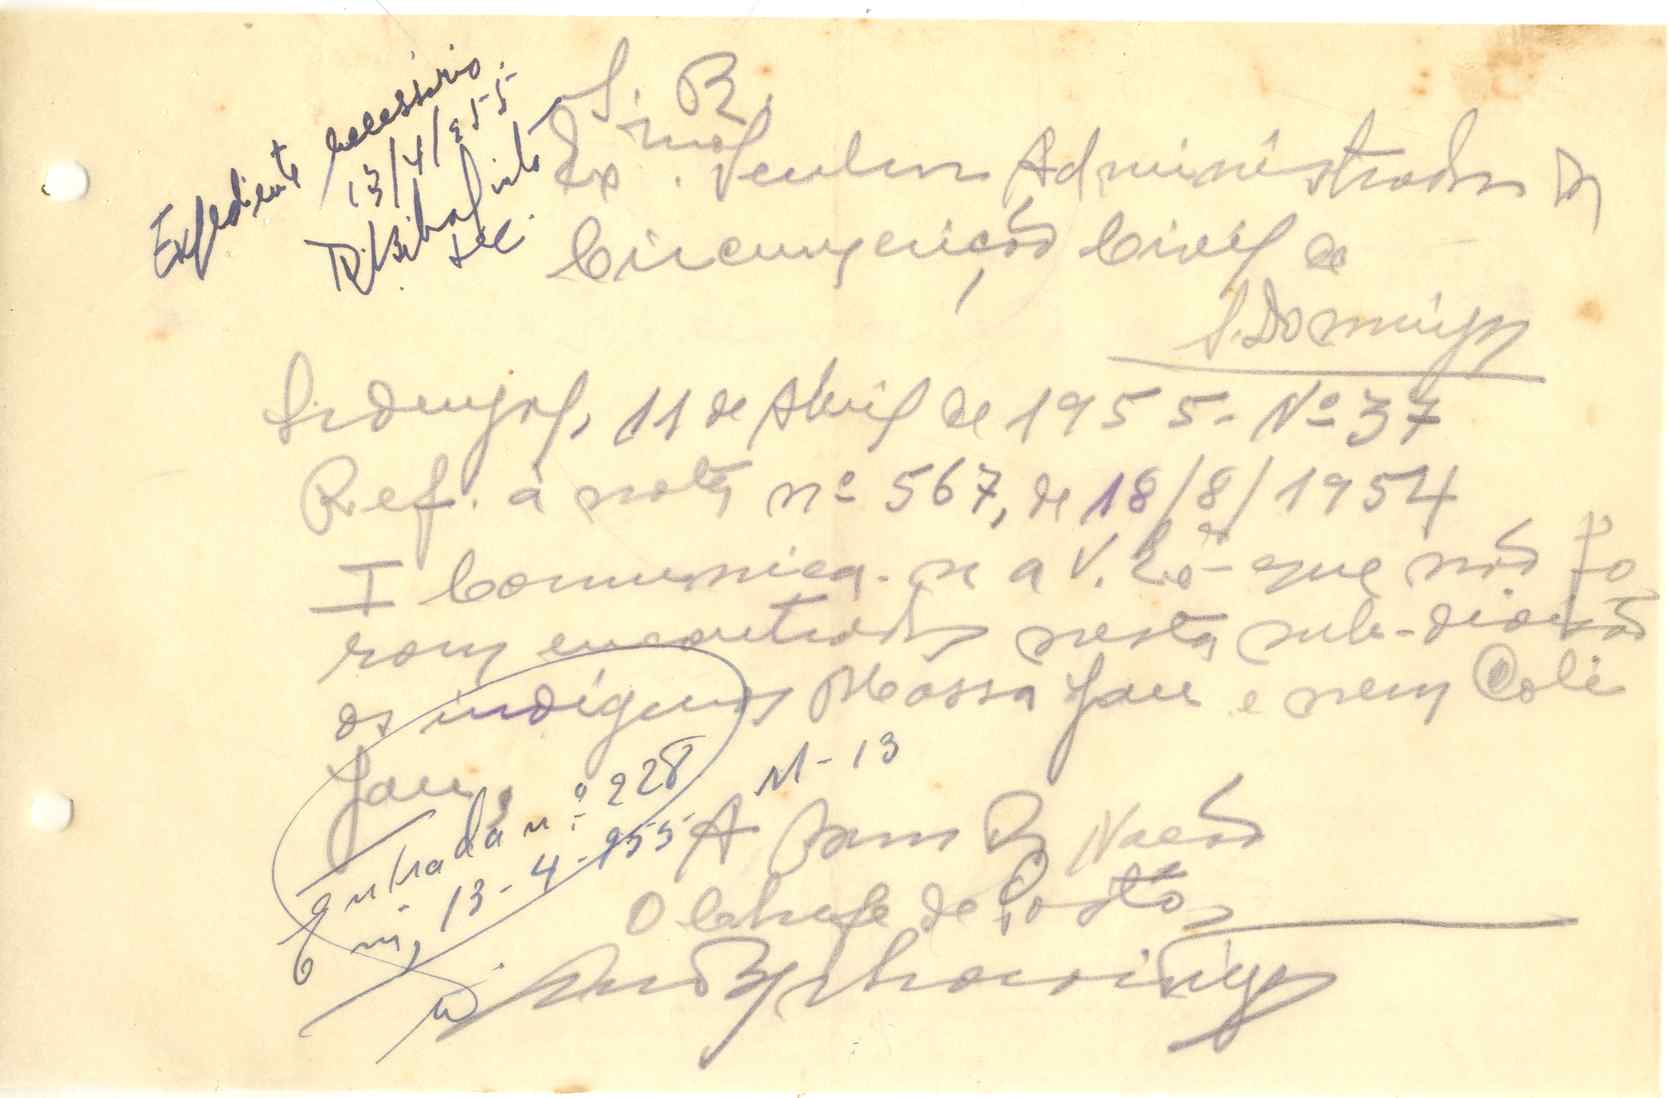 Expediente necessário.
13/4/955
Sec.
S. R.
Exmo. Senhor Administrador da
Circunscrição Civil de
S. Domingos
11 de Abril de 1955 - Nº 37
Ref. à nota nº 567, de 18/8/1954
I Comunica-se a V. Exª que não fo
ram encontrados nesta sub-divisão
os indígenas Mássa Jau e nem Coli
Jau.
Entrada nº 228
13-4-955
M-13
A Bem da Nação
O Chefe de Posto,